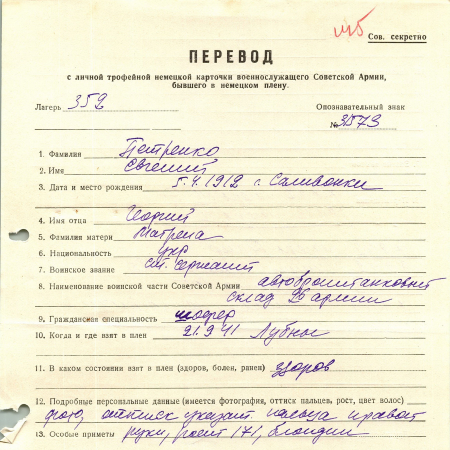 мб
Сов. секретно
ПЕРЕВОД
с личной трофейной немецкой карточки военнослужащего Советской Армии,
бывшего в немецком плену.
Лагерь 352
Опознавательный знак
№ 31573
1. Фамилия Петренко
2. Имя Евгений
3. Дата и место рождения 5.4.1912 г. Саливонки
4. Имя отца Георгий
5. Фамилия матери Матрена
6. Национальность укр
7. Воинское звание ст. сержант
8. Наименование воинской части Советской Армии автобронетанковый
склад 26 армии
9. Гражданская специальность шофер
10. Когда и где взят в плен 21.9.41 Лубны
11. В каком состоянии взят в плен (здоров, болен, ранен) здоров
12. Подробные персональные данные (имеется фотография, оттиск пальцев, рост, цвет волос)
фото, оттиск указат пальца правой
13. Особые приметы руки, рост 171, блондин